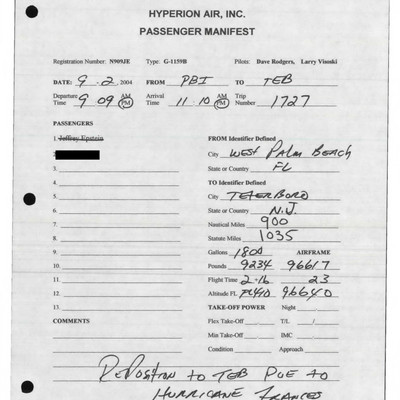 HYPERION AIR, INC.
PASSENGER MANIFEST
Registration Number: N909JE Type: G-1159B Pilots: Dave Rodgers, Larry Visoski
DATE: 9-2, 2004 FROM PBI TO TEB
Departure Time 9 09 AM PM Arrival Time 11.10 AM PM Trip Number 1727
PASSENGERS
1 Jeffrey Epstein FROM Identifier Defined
2. City WEST PALM BEACH
3. State or Country FL
4. TO Identifier Defined
5. City TETERBORO
6. State or Country N.J.
7. Nautical Miles 900
8. Statute Miles 1035
9. Gallons 1800 AIRFRAME
10. Pounds 9234 96617
11. Flight Time 2-16 23
12. Altitude FL FL410 96640
13. TAKE-OFF POWER Night
COMMENTS Flex Take-Off T/L /
Min Take-Off IMC
Condition Approach
RePosition to TEB DUE to
HURRICANE FRANCES